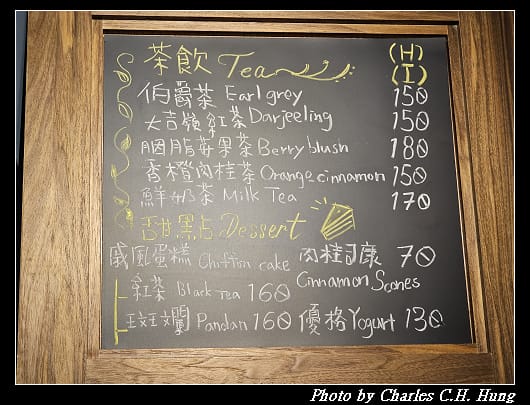 茶飲 Tea (H)
(I)
伯爵茶 Earl grey 150
大吉嶺紅茶 Darjeeling 150
胭脂莓果茶 Berry blush 180
香橙肉桂茶 Orange cinnamon 150
鮮奶茶 Milk Tea 170
甜點 Dessert
戚風蛋糕 Chiffon cake
紅茶 Black tea 160
斑斕 Pandan 160
肉桂司康 70
Cinnamon Scones
優格 Yogurt 130
Photo by Charles C.H. Hung